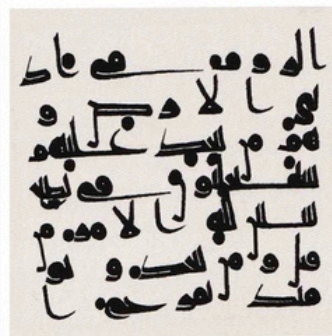 الروم فى اد
نى الارض و
هم من بعد غلبهم
سيغلبون فى بضع
سنين لله الامر م
ن قبل و من بعد و يو
مئذ يفرح ا